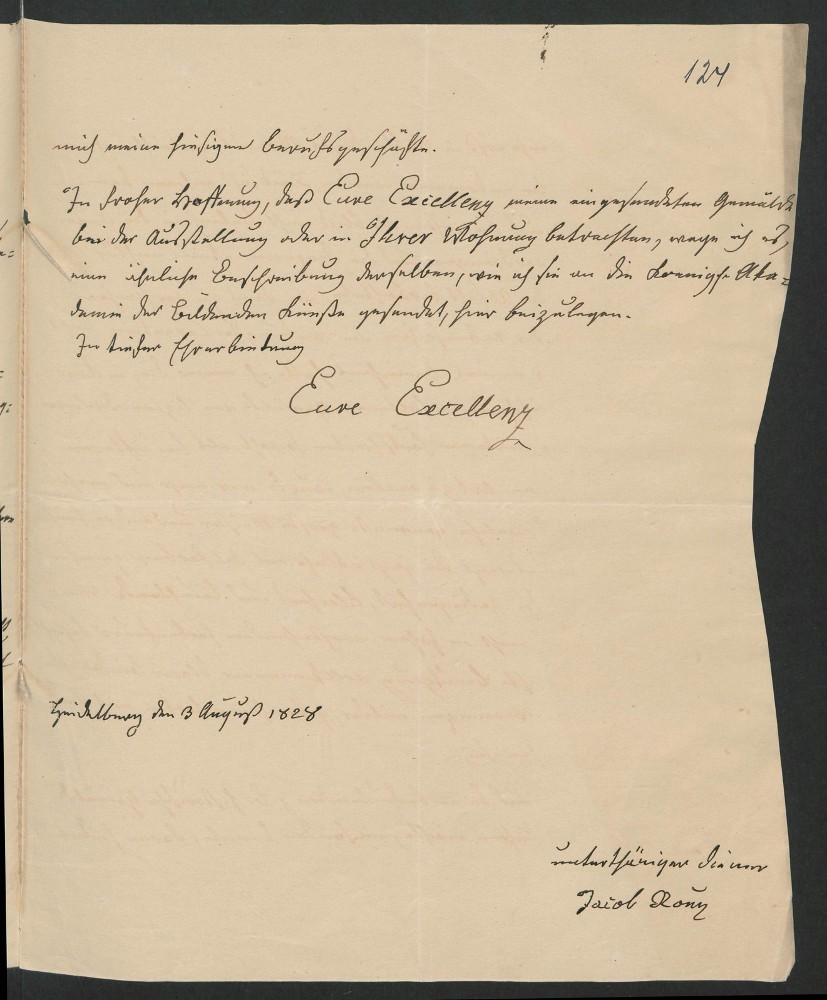 124
mich meine hiesigen Berufsgeschäfte.
In froher Hoffnung, daß Eure Excellenz meine eingesendeten Gemälde
bei der Ausstellung oder in Ihrer Wohnung betrachten, wage ich es,
eine ähnliche Beschreibung derselben, wie ich sie an die Koenigl. Aka=
demie der bildenden Künste gesendet, hier beizulegen.
In tiefer Ehrerbietung
Eure Excellenz
Heidelberg den 3 August 1828
unterthäniger Diener
Jacob Roux